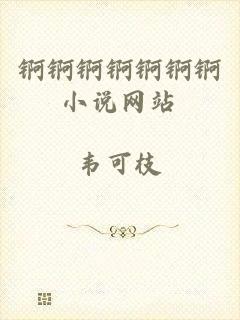 锕锕锕锕锕锕锕
小说网站
韦可枝